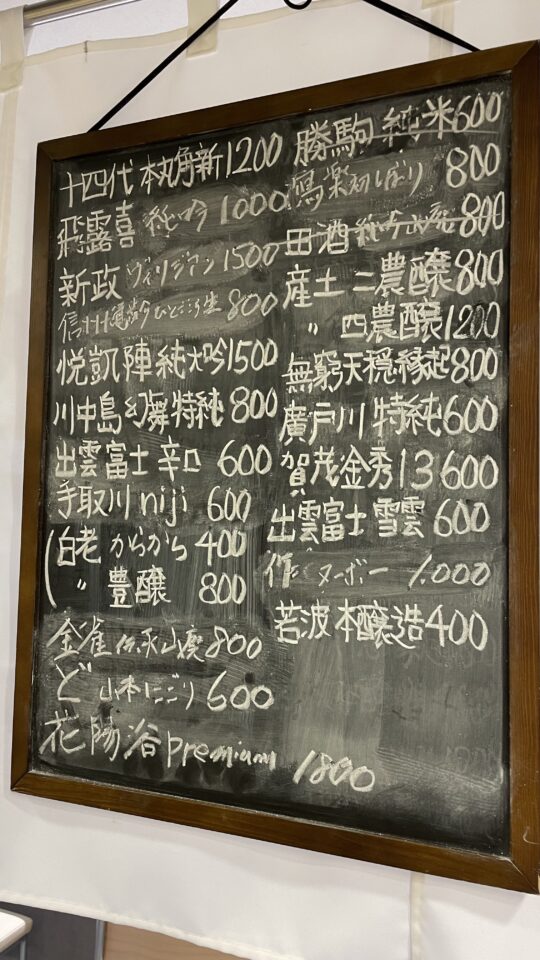 十四代 本丸角新 1200
飛露喜 純吟 1000
新政 ヴィリジアン 1500
信州亀齢 ひとごこち生 800
悦凱陣 純大吟 1500
川中島幻舞 特純 800
出雲富士 辛口 600
手取川 niji 600
(白老 からから 400
( 〃 豊醸 800
金雀 伝承山廃 800
ど 山本にごり 600
花陽浴 premium 1800
勝駒 純米 600
寫楽 初しぼり 800
田酒 純吟山廃 800
産土 二農醸 800
〃 四農醸 1200
無窮天穏 縁起 800
廣戸川 特純 600
賀茂金秀 13 600
出雲富士 雪雲 600
作 ヌーボー 1.000
若波 本醸造 400